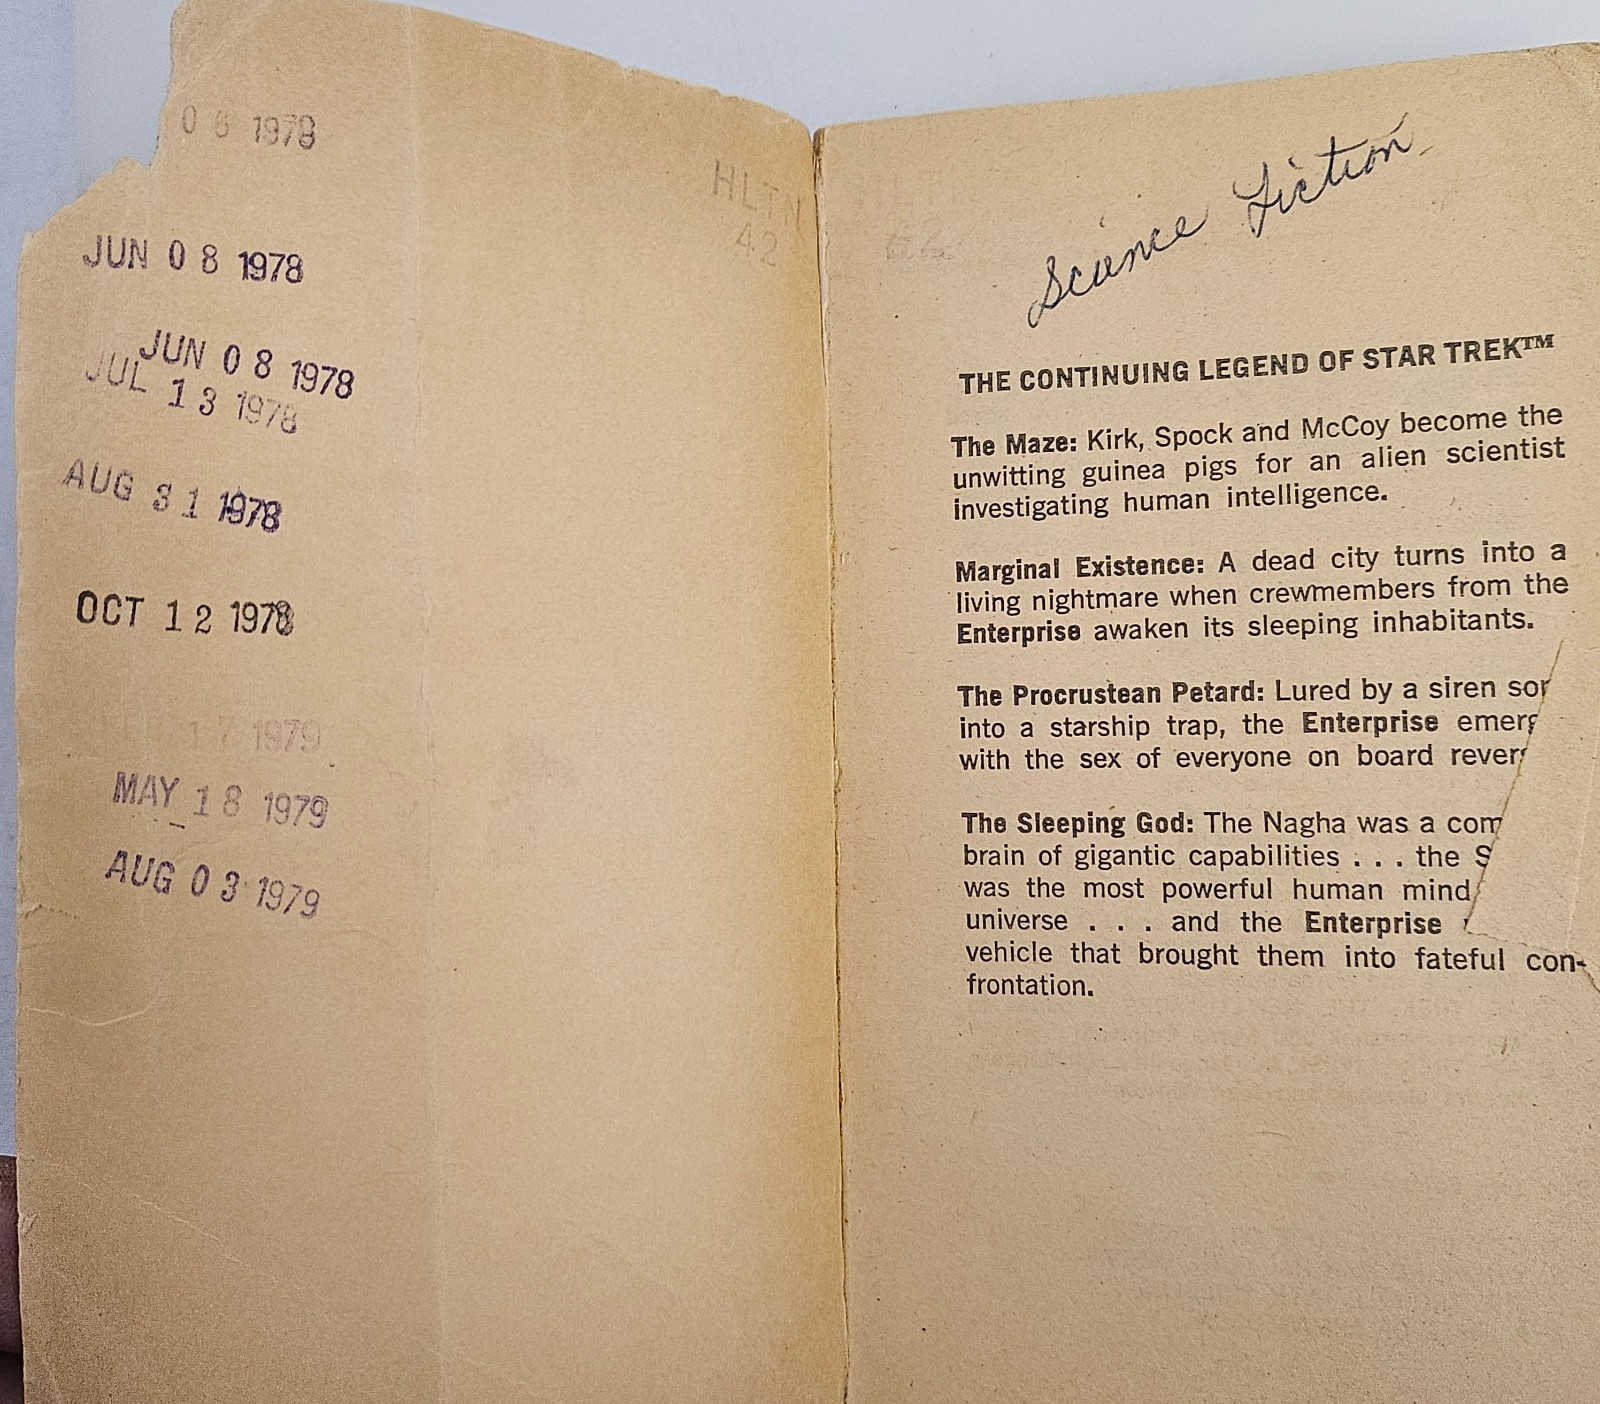 0 8 1978
JUN 0 8 1978
JUN 0 8 1978
JUL 1 3 1978
AUG 3 1 1978
OCT 1 2 1978
1 7 1979
MAY 1 8 1979
AUG 0 3 1979
HLTN
42
HLTN
42
Science Fiction
THE CONTINUING LEGEND OF STAR TREK™
The Maze: Kirk, Spock and McCoy become the
unwitting guinea pigs for an alien scientist
investigating human intelligence.
Marginal Existence: A dead city turns into a
living nightmare when crewmembers from the
Enterprise awaken its sleeping inhabitants.
The Procrustean Petard: Lured by a siren son
into a starship trap, the Enterprise emerg
with the sex of everyone on board revers
The Sleeping God: The Nagha was a com
brain of gigantic capabilities . . . the S
was the most powerful human mind
universe . . . and the Enterprise
vehicle that brought them into fateful con-
frontation.